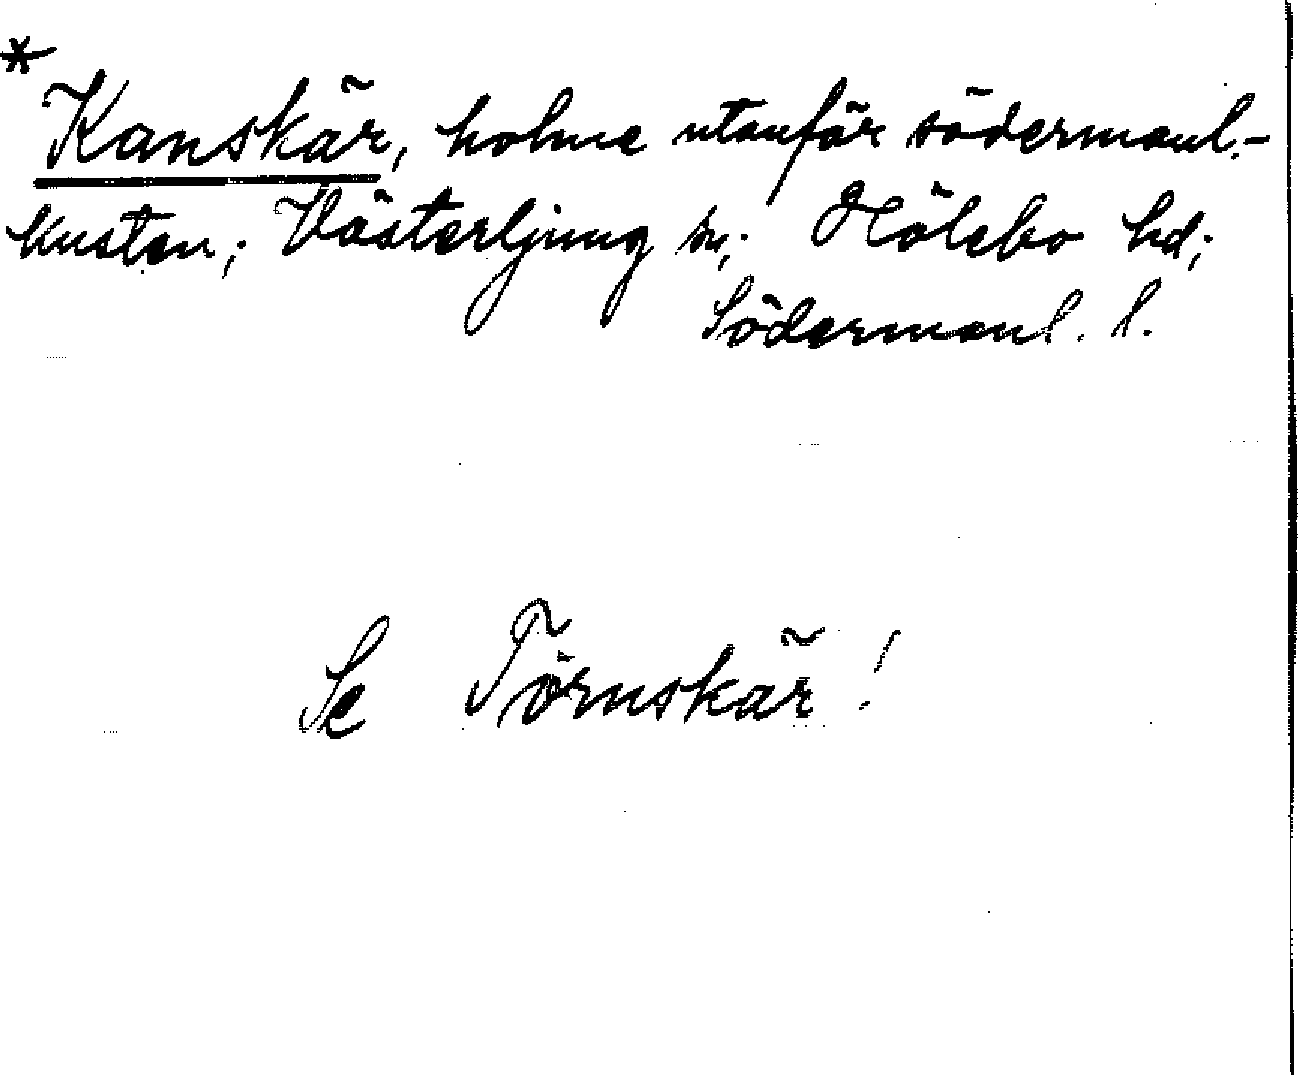 * Kanskär, holme utanför södermanl.-
kusten; Västerljung sn; Hölebo hd;
Södermanl. l.
Se Törnskär!